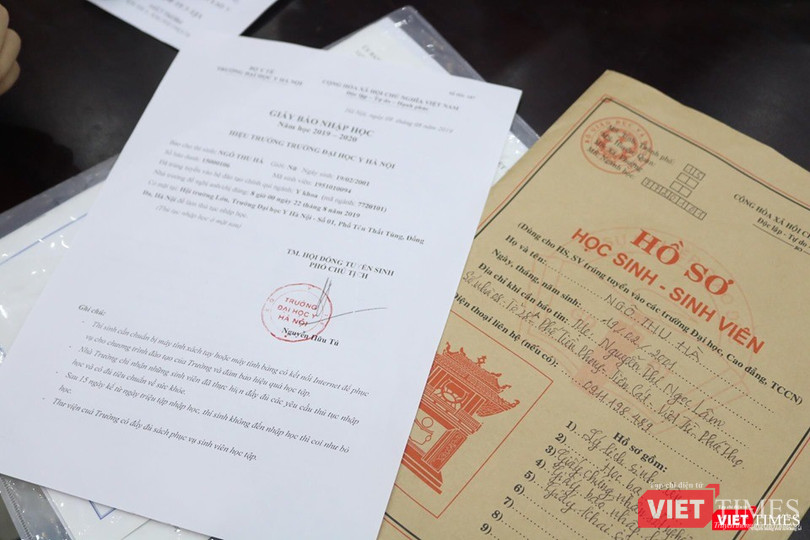 BỘ Y TẾ
TRƯỜNG ĐẠI HỌC Y HÀ NỘI
CỘNG HÒA XÃ HỘI CHỦ NGHĨA VIỆT NAM
Độc lập - Tự do - Hạnh phúc
Hà Nội, ngày 09 tháng 08 năm 2019
GIẤY BÁO NHẬP HỌC
Năm học 2019 - 2020
HIỆU TRƯỞNG TRƯỜNG ĐẠI HỌC Y HÀ NỘI
Báo cho thí sinh: NGÔ THU HÀ Giới: Nữ Ngày sinh: 19/02/2001
Số báo danh: Mã sinh viên: 1951010094
Đã trúng tuyển vào hệ đào tạo chính qui ngành: Y khoa (mã ngành: 7720101)
Nhà trường đề nghị anh/chị đúng: 8 giờ 00 ngày 22 tháng 8 năm 2019
Có mặt tại: Hội trường Lớn, Trường Đại học Y Hà Nội - Số 01, Phố Tôn Thất Tùng, Đống
Đa, Hà Nội để làm thủ tục nhập học.
(Thủ tục nhập học ở mặt sau)
TM. HỘI ĐỒNG TUYỂN SINH
PHÓ CHỦ TỊCH
TRƯỜNG
ĐẠI HỌC Y
HÀ NỘI
Nguyễn Hữu Tú
Ghi chú:
- Thí sinh cần chuẩn bị máy tính xách tay hoặc máy tính bảng có kết nối Internet để phục
vụ cho chương trình đào tạo của Trường và đảm bảo hiệu quả học tập.
- Nhà Trường chỉ nhận những sinh viên đã thực hiện đầy đủ các yêu cầu thủ tục nhập
học và có đủ tiêu chuẩn về sức khỏe.
- Sau 15 ngày kể từ ngày triệu tập nhập học, thí sinh không đến nhập học thì coi như bỏ
học.
- Thư viện của Trường có đầy đủ sách phục vụ sinh viên học tập.
CỘNG HÒA XÃ HỘI CH
Độc lập - Tự do
HỒ SƠ
HỌC SINH - SINH VIÊN
(Dùng cho HS, SV trúng tuyển vào các trường Đại học, Cao đẳng, TCCN)
Họ và tên: NGÔ THU HÀ
Ngày, tháng, năm sinh: 19/02/2001
Địa chỉ khi cần báo tin: Mẹ: Nguyễn Thị Ngọc Lâm
Việt Trì - Phú Thọ
Điện thoại liên hệ (nếu có):
Hồ sơ gồm:
1) Lý lịch sinh
2) Học bạ
3) Giấy chứng nhận
4) Giấy báo nhập
5) Giấy khai sinh
6)
7)
8)
9)
Tạp chí điện tử
VIETTIMES
VIETTIMES